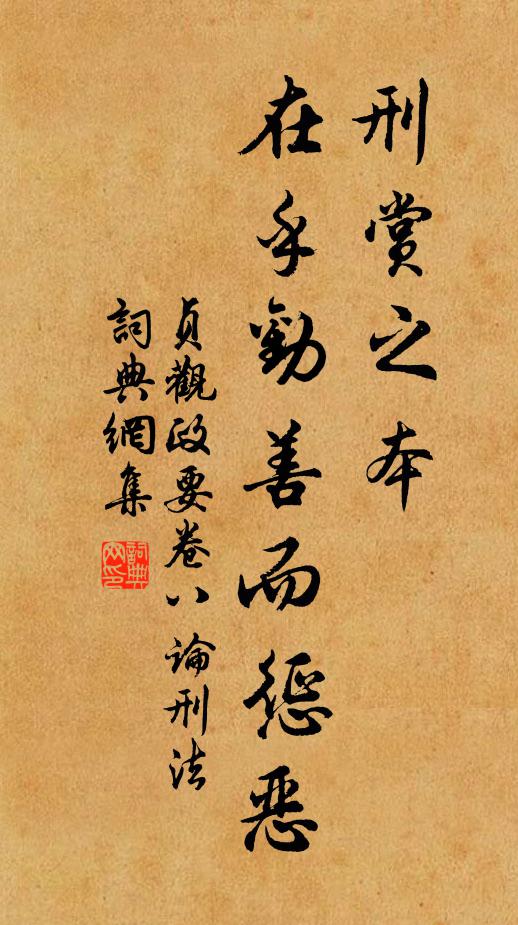 刑賞之本
在乎勸善而懲惡
貞觀政要卷八論刑法
詞典網集
詞典網印